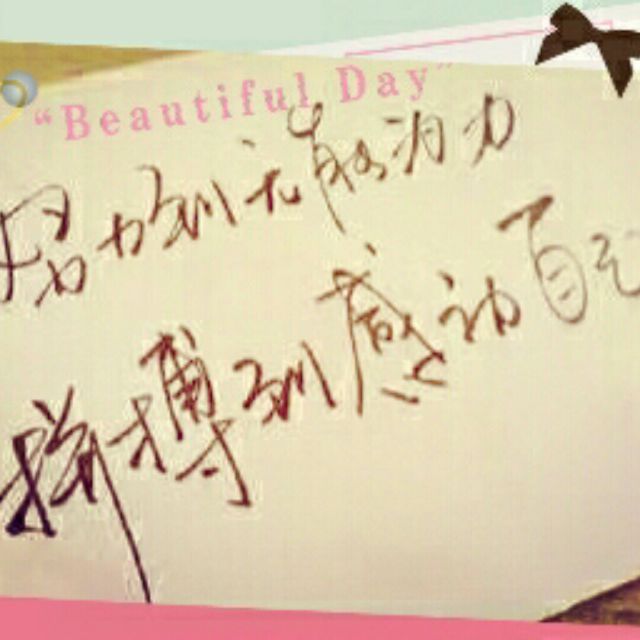 “Beautiful Day”
努力到无能为力
拼搏到感动自己